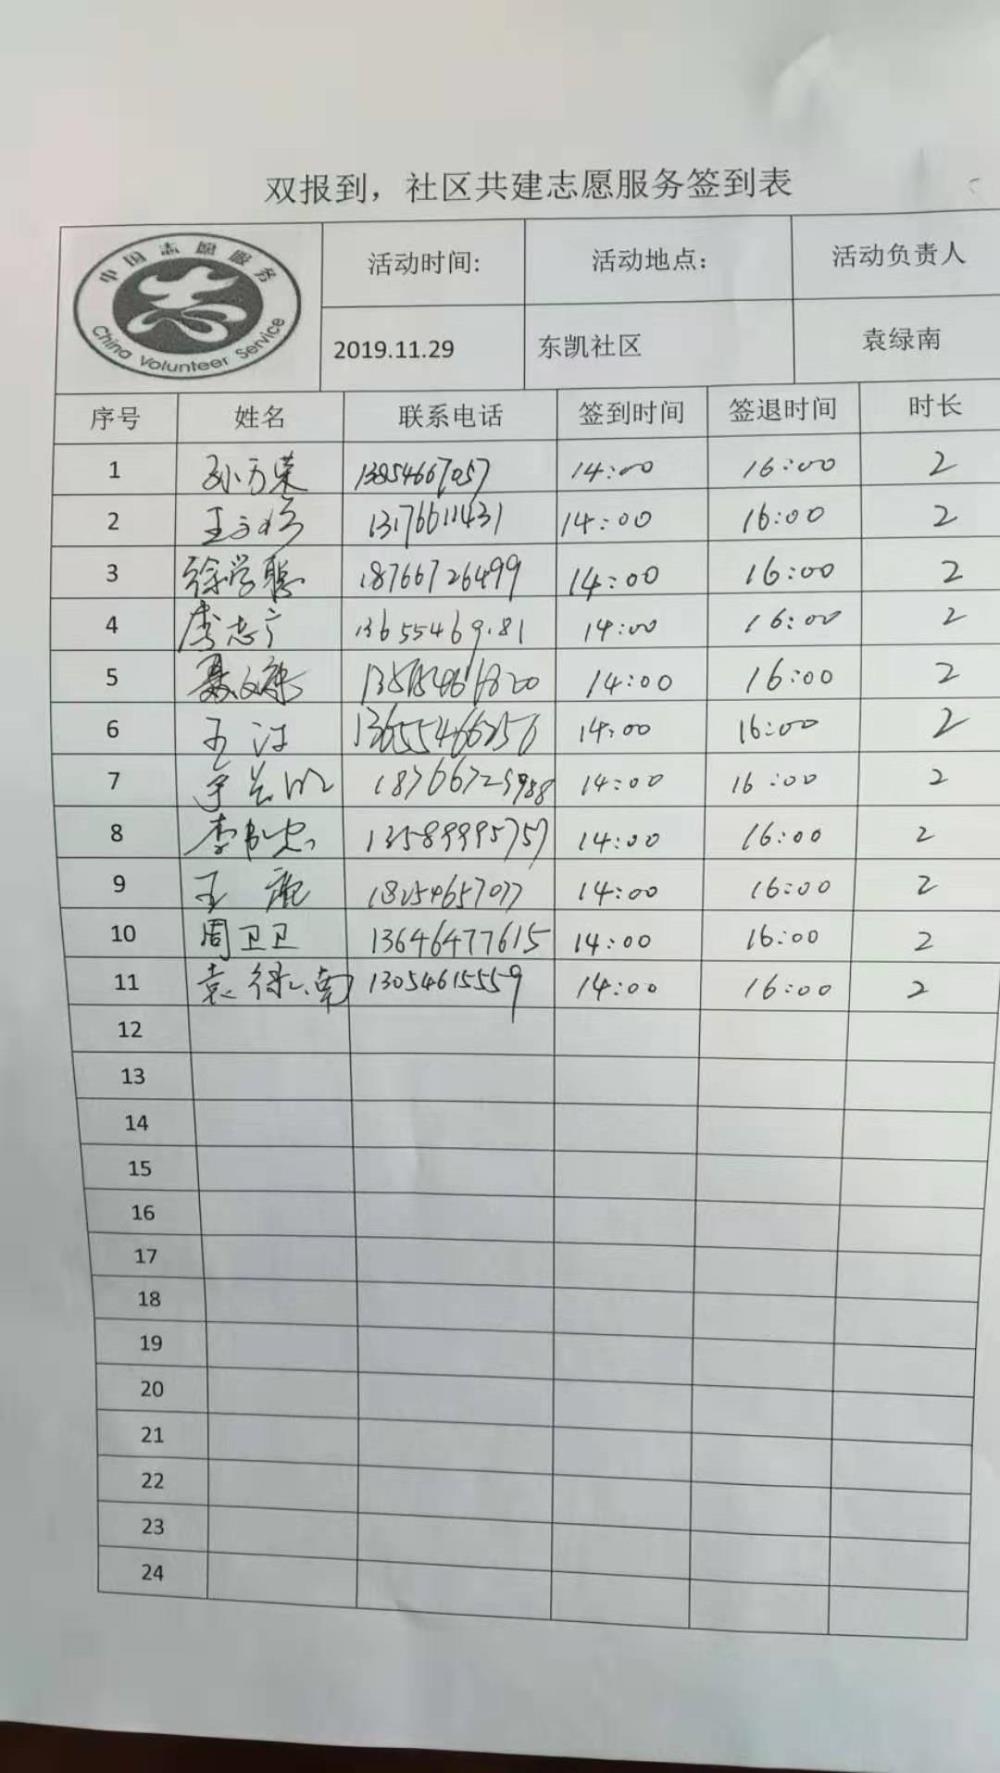 双报到，社区共建志愿服务签到表
中国志愿服务
China Volunteer Service
活动时间: 活动地点: 活动负责人
2019.11.29 东凯社区 袁绿南
序号 姓名 联系电话 签到时间 签退时间 时长
1 孙万荣 13854667057 14:00 16:00 2
2 13176611431 14:00 16:00 2
3 徐学聪 18766726499 14:00 16:00 2
4 李志广 14:00 16:00 2
5 14:00 16:00 2
6 14:00 16:00 2
7 14:00 16:00 2
8 14:00 16:00 2
9 18254657077 14:00 16:00 2
10 周卫卫 13646477615 14:00 16:00 2
11 袁绿南 13054615559 14:00 16:00 2
12
13
14
15
16
17
18
19
20
21
22
23
24